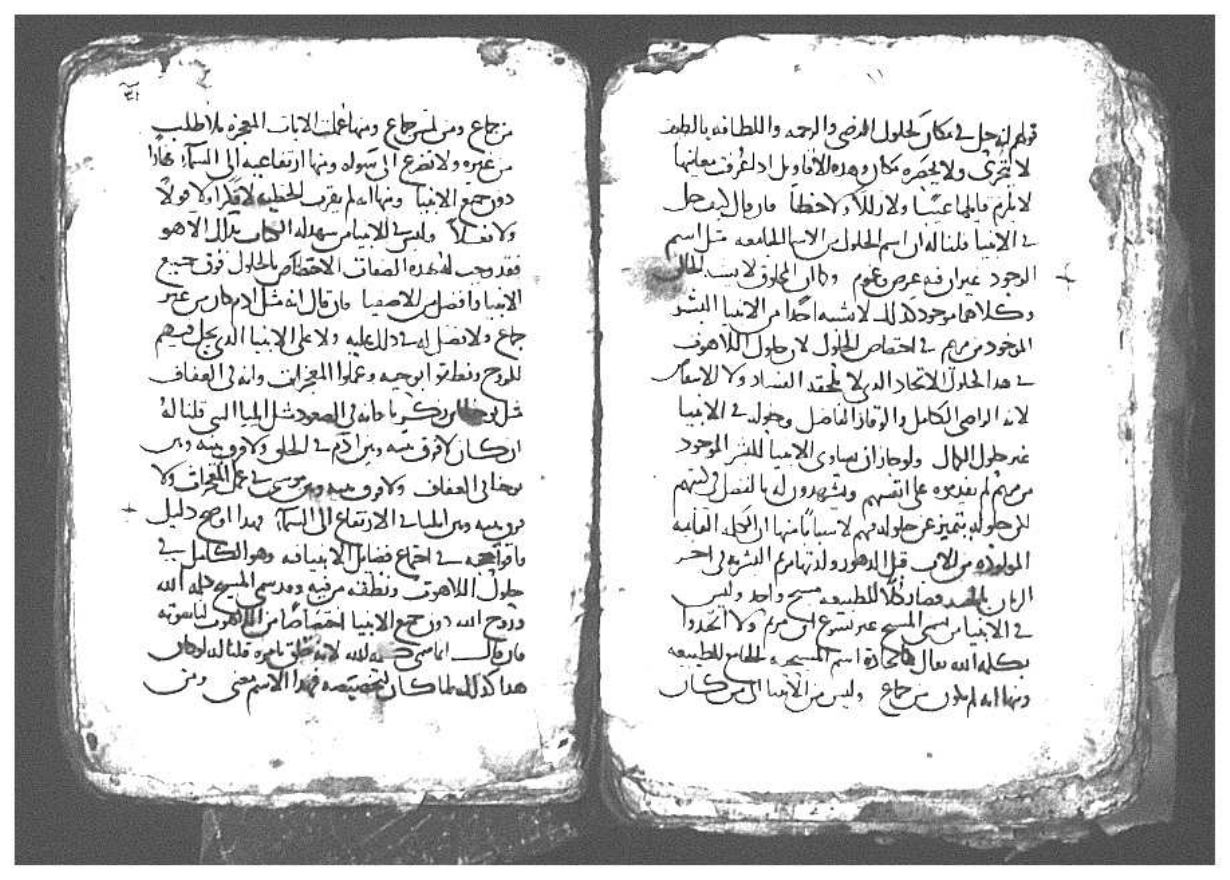 قولهم انه حل في مكان كحلول الرضى والرحمه واللطافه باللطف
لا يتجزى ولا يحصره مكان وهذه الاقاويل اذا عرفت معانيها
لا يلزم قايلها عيبًا ولا زللاً ولا خطاً فان قال كيف حل
في الانبيا قلنا له ان اسم الحلول من الاسما الجامعه مثل اسم
الوجود غير ان فيه عرض وعموم وكان المخلوق لا يشبه الخالق
وكلاهما موجود كذلك لا يشبه احدًا من الانبيا البشر
الموخود من مريم في اختصاص الحلول لان حلول اللاهوت
في هذا الحلول الاتحاد الذي لا يلحقه الفساد ولا الانتقاض
لانه الراضي الكامل والوقار الفاضل وحلوله في الانبيا
غير حلول الكمال ولو جاز ان يساوى الانبيا للبشر الموجود
من مريم لم يقدموه على انفسهم ويشهدون له بالفضل في كتبهم
لكن حلوله يتميز عن حلوله فيهم لاسباب منها ان الكلمه القايمه
المولوده من الاب قبل الدهور ولدتها مريم البشريه في اخر
الزمان فصار كلا للطبيعه مسيح واحد وليس
في الانبيا من اسمى المسيح غير يشوع ابن مريم ولا اتحدوا
بكلمة الله تعالى اسم المسيحيه الجامع للطبيعه
ومنها انه لم يكون من جماع وليس من الانبيا الا من كان
١٣
من جماع ومن ليس جماع ومنها عملت الايات المعجزه بلا طلب
من غيره ولا تضرع الى سواه ومنها ارتفاعه الى السماء نهارا
دون جميع الانبيا ومنها انه لم يقرب الخطيه لا فكرا ولا قولاً
ولا فعلاً وليس في الانبيا من شهد له الكتاب بذلك الا هو
فقد وجب له بهذه الصفات الاختصاص بالحلول فوق جميع
الانبيا وافضل من الاصفيا فان قال انه مثل ادم كان من غير
جماع ولا فضل له في ذلك عليه ولا على الانبيا الذي يحل فيهم
الروح ونطقوا بوحيه وعملوا المعجزات وانه في العفاف
مثل يوحنا بن زكريا وانه في الصعود مثل ايليا النبي قلنا له
ان كان لا فرق بينه وبين ادم في الخلق ولا فرق بينه وبين
يوحنا في العفاف ولا فرق بينه وبين موسى في عمل المعجزات ولا
فرق بينه وبين ايليا في الارتفاع الى السماء فهذا اوضح دليل
واقوا حجه في اجتماع فضايل الانبيا فيه وهو الكامل في
حلول اللاهوت ونطقه من فيه وقد سمي المسيح كلمة الله
وروح الله دون جميع الانبيا اختصاصًا من اللاهوت لناسوته
فان قال انما سمي كلمة الله لانه خلق بامره قلنا له لو كان
هذا كذلك لما كان لتخصيصه بهذا الاسم معنى ومن